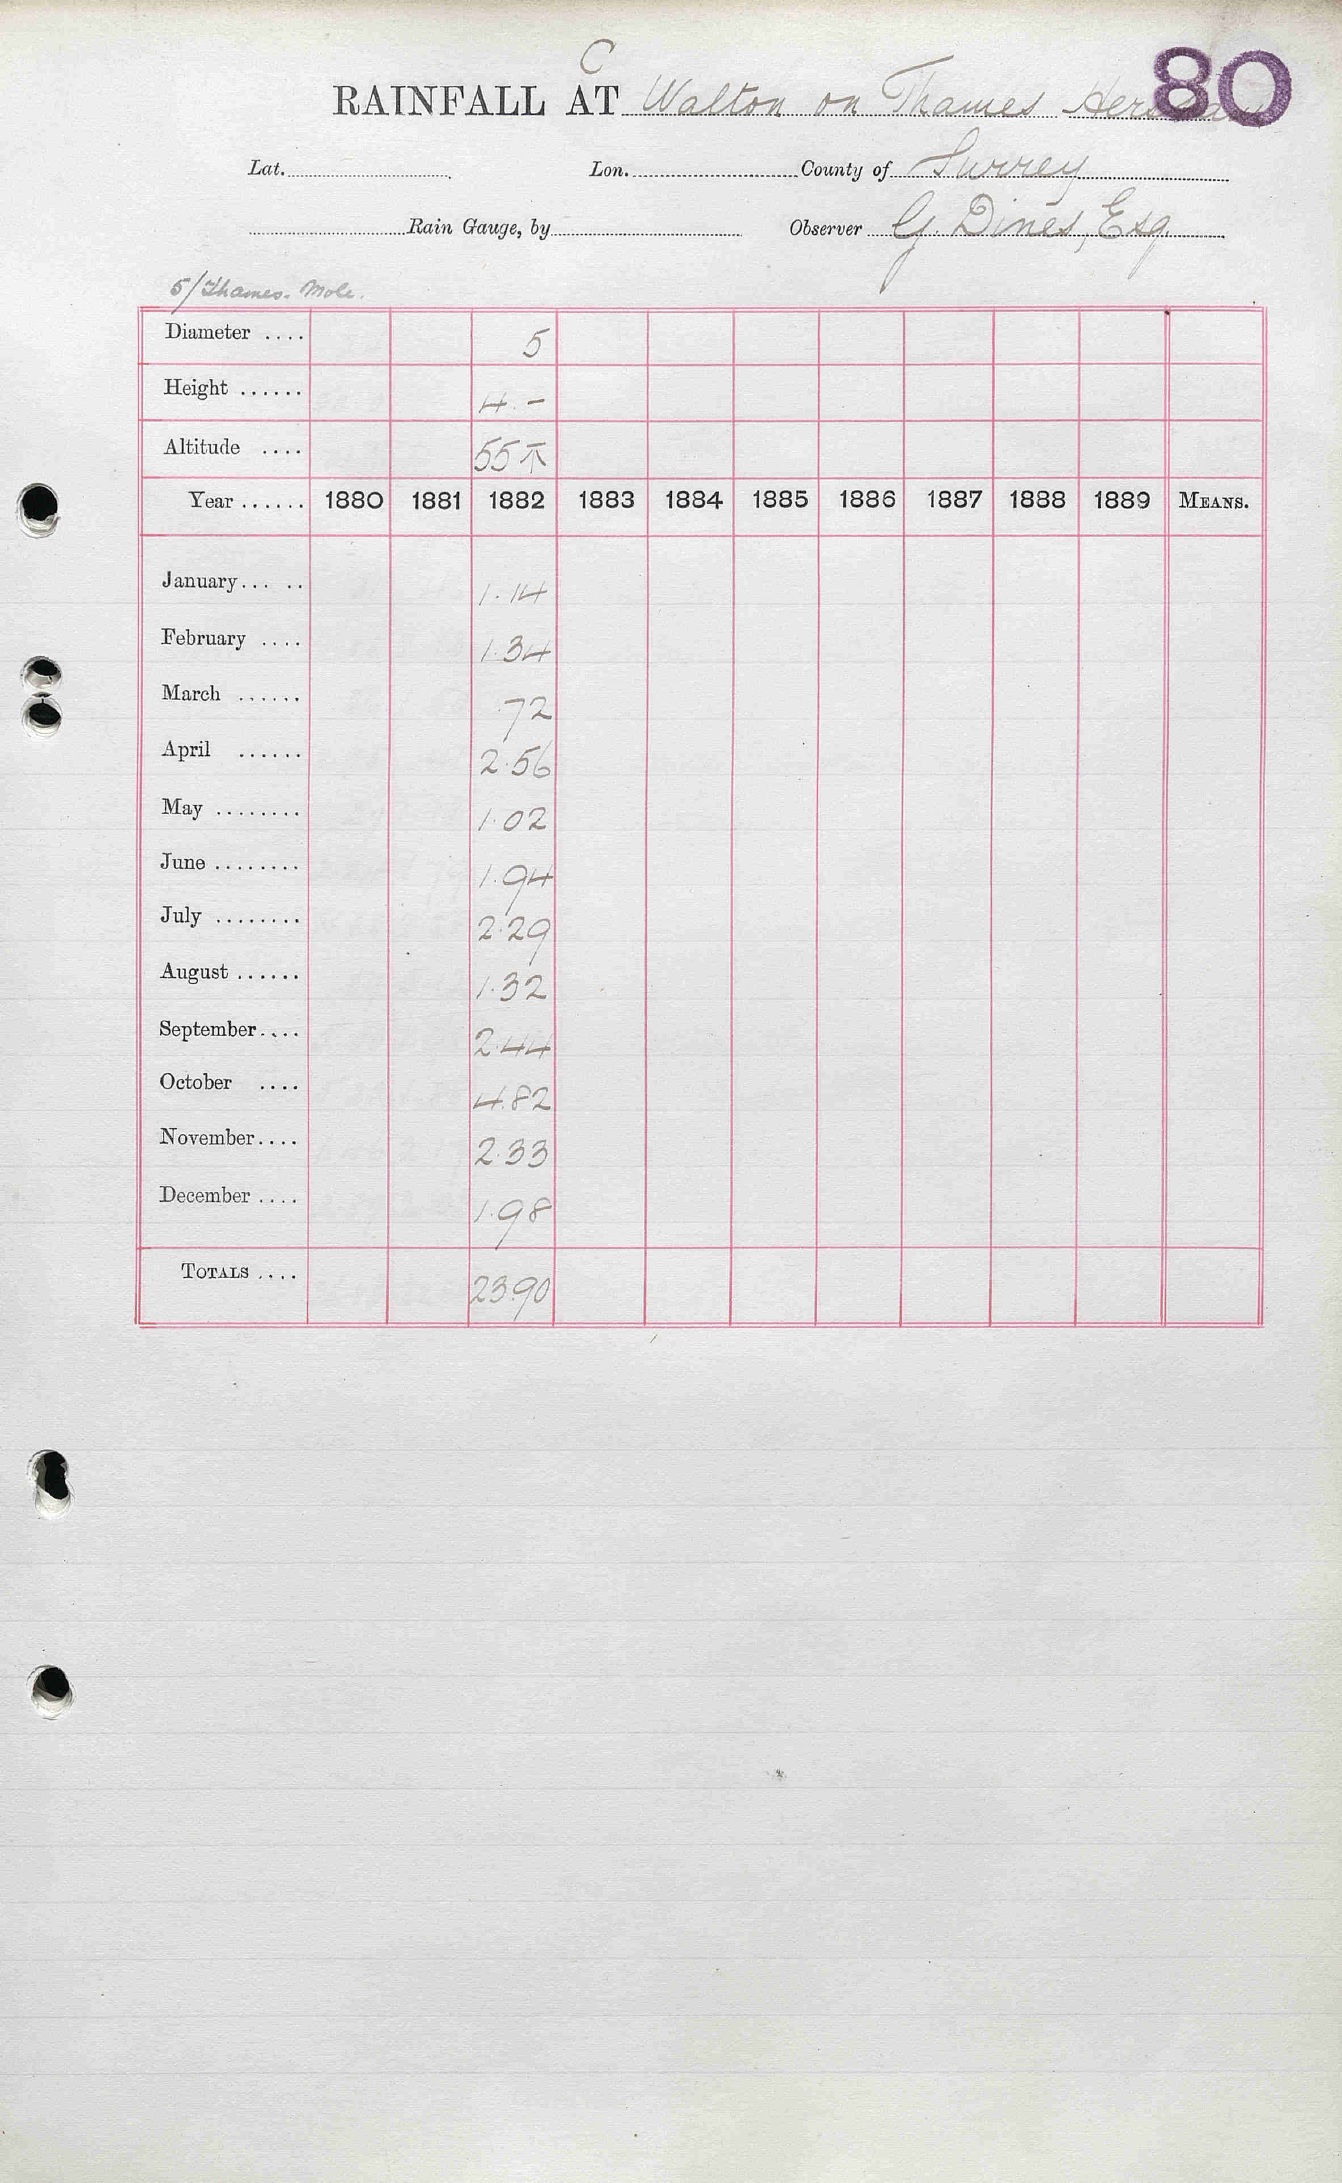 C
80
RAINFALL AT Walton on Thames Hersham
Lat. Lon. County of Surrey
Rain Gauge, by Observer G. Dines, Esq.
5/Thames. Mole.
Diameter .... 5
Height ...... 4. -
Altitude .... 55
Year ...... 1880 1881 1882 1883 1884 1885 1886 1887 1888 1889 MEANS.
January... .. 1.14
February .... 1.34
March ...... .72
April ...... 2.56
May ........ 1.02
June ........ 1.94
July ........ 2.29
August ...... 1.32
September.... 2.44
October .... 4.82
November.... 2.33
December .... 1.98
TOTALS .... 23.90